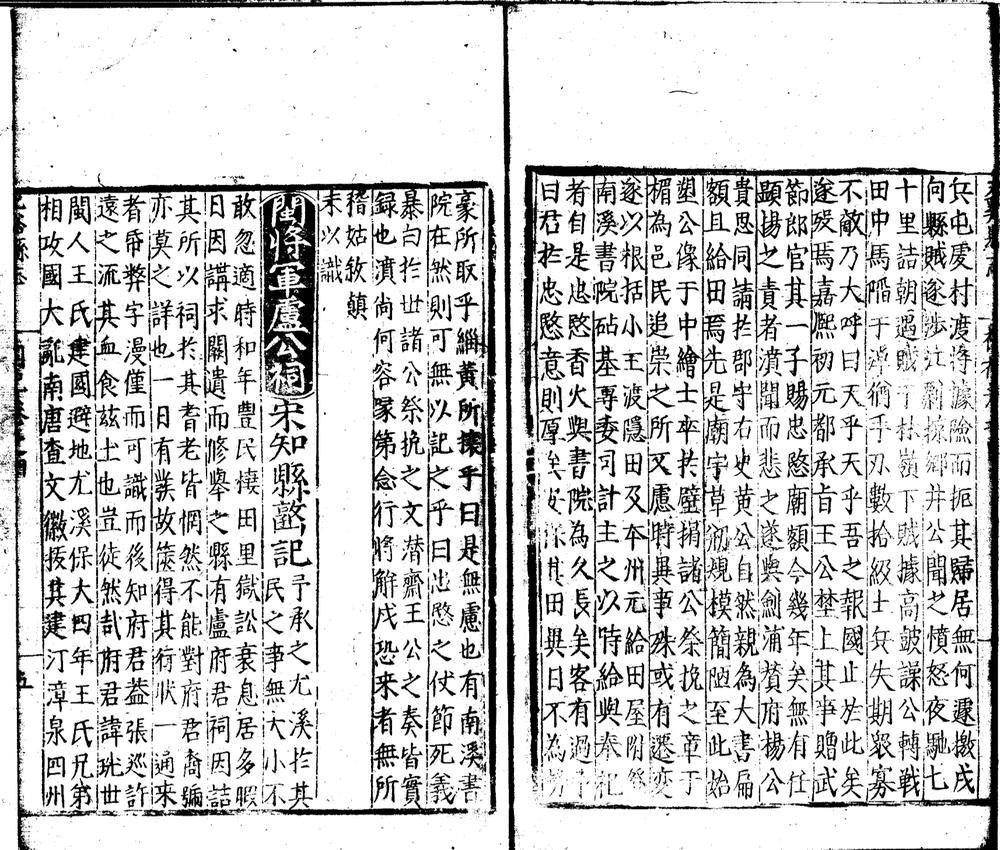 兵屯虔村渡将據險而扼其歸居無何遽撽戍
向縣賊遂渉江剽掠鄉井公聞之憤怒夜馳七
十里詰朝遇賊于林嶺下賊據高皷譟公轉戰
田中馬陷于淖猶手刃數拾級士兵失期衆寡
不敵乃大呼曰天乎天乎吾之報國止於此矣
遂歿焉嘉熈初元都承旨王公埜上其事贈武
節郎官其一子賜忠愍廟額今幾年矣無有任
顯揚之責者濆聞而悲之遂與劍浦賛府楊公
貴思同請扵郡守右史黄公自然親為大書扁
額且給田焉先是廟宇草剏規模簡陋至此始
塑公像于中繪士卒扵壁揭諸公祭挽之章于
楣為邑民追崇之所又慮時異事殊或有遷変
遂以根括小王渡隠田及夲州元給田屋附
南溪書院砧基専委司計主之以時給與奉祀
者自是忠愍香火與書院為久長矣客有過
曰君扵忠愍意則厚矣 其田異日不為
豪所取乎緇黄所攘乎曰是無慮也有南溪書
院在然則可無以記之乎曰忠愍之仗節死義
暴白扵世諸公祭挽之文潜齋王公之奏皆實
録也濆尚何容喙第念行将解戍恐来者無所
稽姑敘顛
末以識
閩將軍盧公祠宋知縣 記予承之尤溪扵其民之事無大小不
敢忽適時和年豊民棲田里獄訟衰息居多暇
日因講求闕遺而修舉之縣有盧府君祠因詰
其所以祠扵其耆老皆惘然不能對府君裔孫
亦莫之詳也一日有業故篋得其行状一通来
者昏弊字漫僅而可識而後知府君葢張巡許
遠之流其血食兹土也豈徒然哉府君諱珖世
閩人王氏建國避地尤溪保大四年王氏兄弟
相攻國大亂南唐查文徽拔其建汀漳泉四州